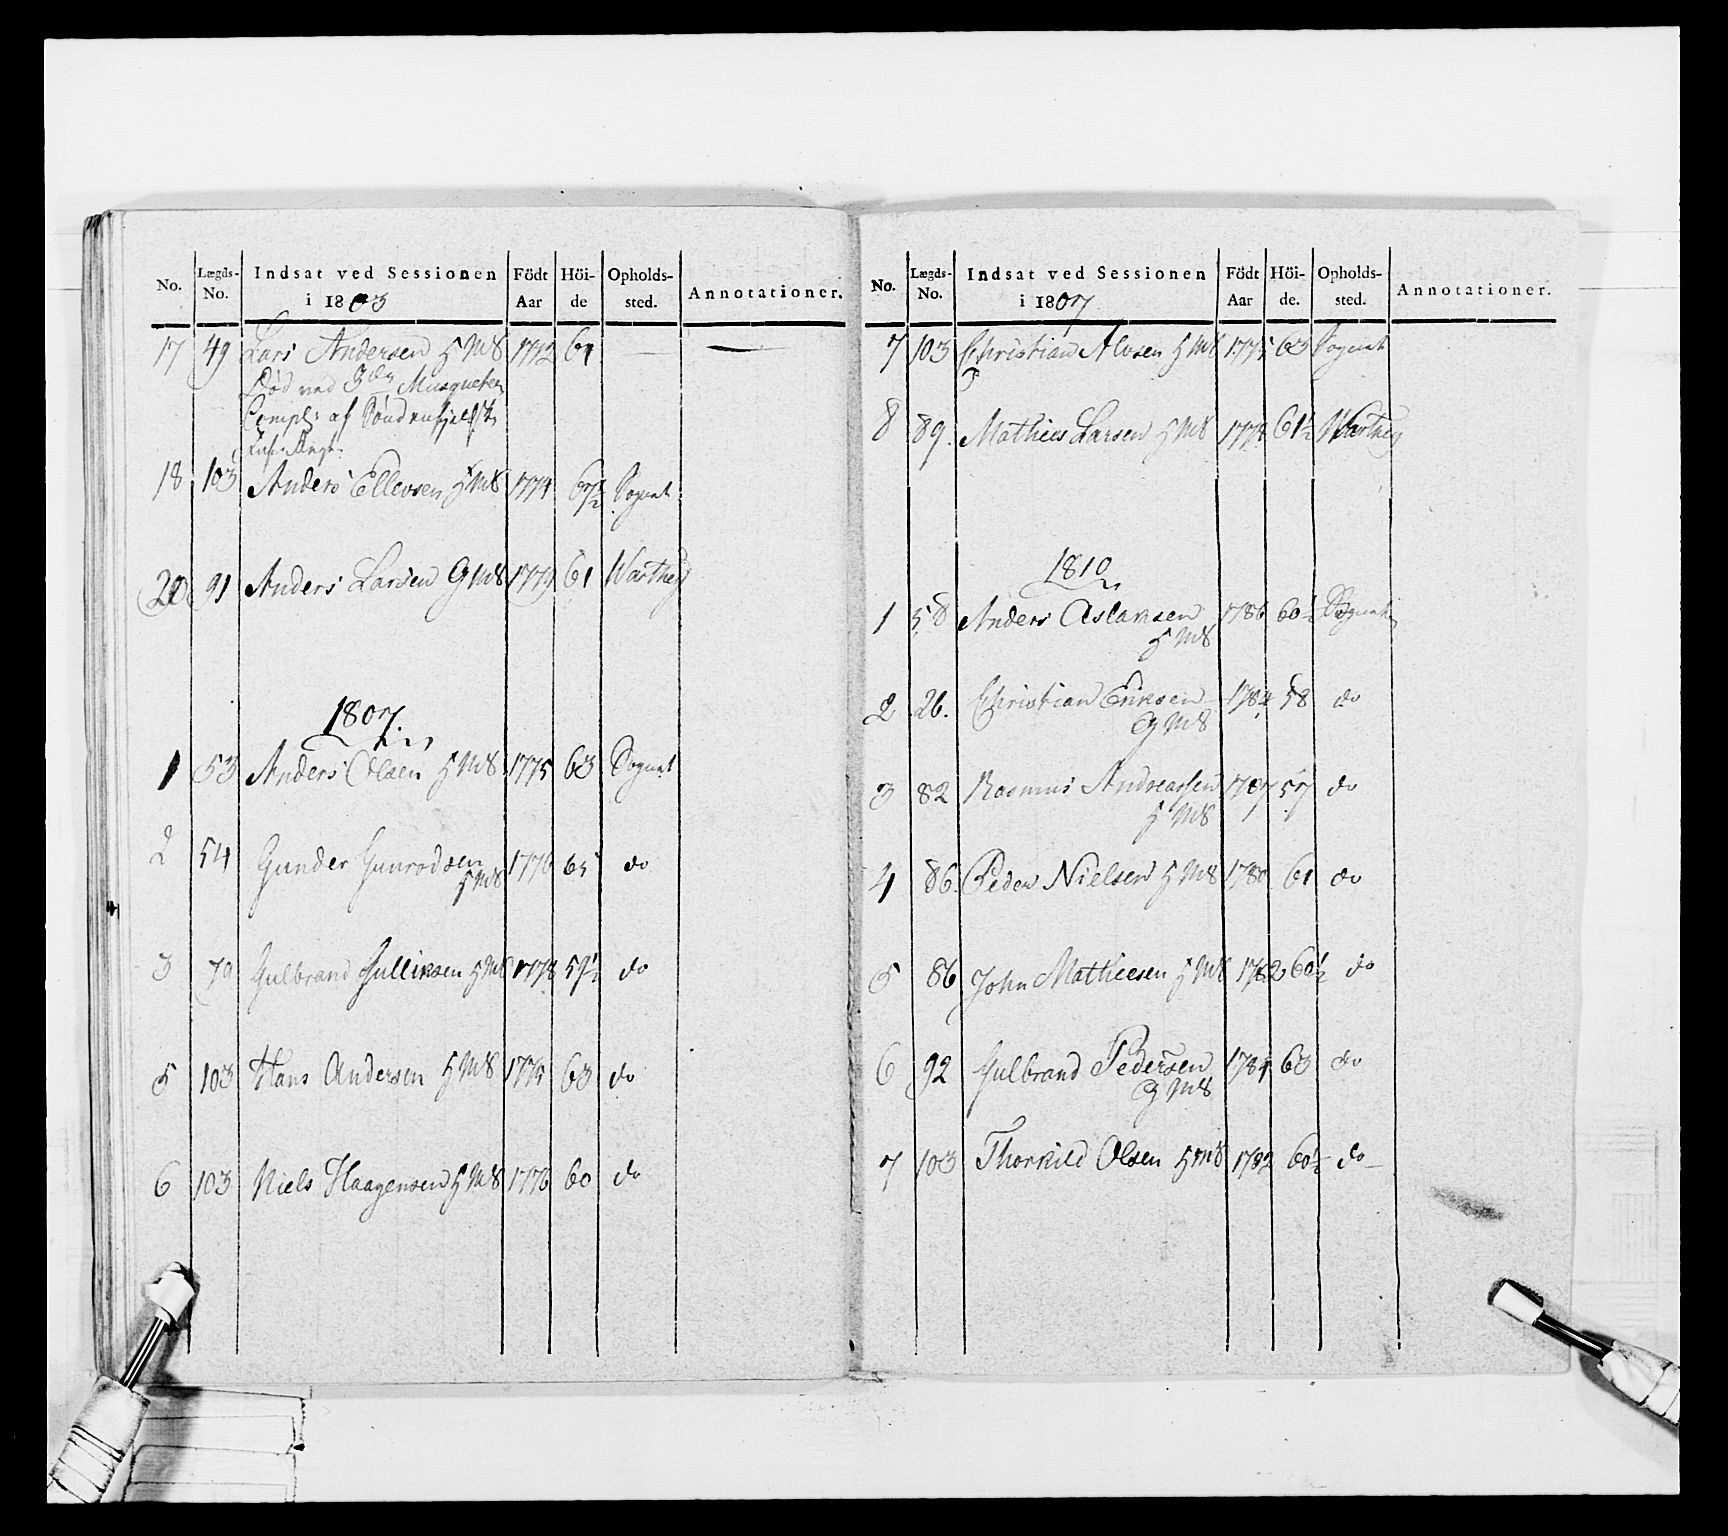 No. Lægds-No. Indsat ved Sessionen i 1803 Födt Aar Höi-de Opholds-sted. Annotationer.
17 49 Lars Andersen 1772 61 —
Död ved 3die Musqueteer
Compl: af Söndenfjelske
Inf: Regt.
18 103 Anders Ellevsen 1774 Sognet
20 91 Anders Larsen 1774 61 Warthey
1807.
1 53 Anders Olsen 1775 63 Sognet
2 54 Gunder Gunrodsen 1776 do
3 Gulbrand Gulliksen 1778 59½ do
5 103 Hans Andersen 1775 63 do
6 103 Niels Haagensen 1776 60 do
No. Lægds-No. Indsat ved Sessionen i 1807 Födt Aar Höi-de. Opholds-sted. Annotationer.
7 103 Christian Alvsen 1775 63 Sognet
8 89. Mathies Larsen 61½ Warthey
1810
1 58 Anders Aslaksen 1786 60½ Sognet
2 26. Christian Eriksen 1784 58 do
3 82 Rasmus Andreassen 1787 57 do
4 86. Peder Nielsen 1780 61 do
5 86 John Mathiesen 1782 60½ do
6 92 Gulbrand Pedersen 1784 63 do
7 103 Thorkild Olsen 1782 60½ do